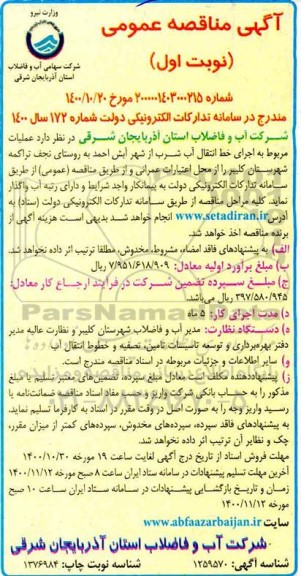 وزارت نیرو
شرکت سهامی آب و فاضلاب
استان آذربایجان شرقی
آگهی مناقصه عمومی
(نوبت اول)
شماره ۲۰۰۰۰۰۱۴۰۳۰۰۰۲۱۵ مورخ ۱۴۰۰/۱۰/۲۰
مندرج در سامانه تدارکات الکترونیکی دولت شماره ۱۷۲ سال ۱۴۰۰
شرکت آب و فاضلاب استان آذربایجان شرقی در نظر دارد عملیات
مربوط به اجرای خط انتقال آب شرب از شهر آبش احمد به روستای نجف تراکمه
شهرستان کلیبر را از محل اعتبارات عمرانی و از طریق مناقصه (عمومی) از طریق
سامانه تدارکات الکترونیکی دولت به پیمانکار واجد شرایط و دارای رتبه آب واگذار
نماید. کلیه مراحل مناقصه از طریق سامانه تدارکات الکترونیکی دولت (ستاد) به
آدرس www.setadiran.ir انجام خواهد شد بدیهی است هزینه آگهی از
برنده مناقصه اخذ خواهد شد.
الف) به پیشنهادهای فاقد امضاء، مشروط، مخدوش، مطلقا ترتیب اثر داده نخواهد شد.
ب) مبلغ برآورد اولیه معادل: ۷/۹۵۱/۶۱۸/۹۰۹ ریال
ج) مبلغ سپرده تضمین شرکت در فرآیند ارجاع کار معادل:
۳۹۷/۵۸۰/۹۴۵ ریال می‌باشد.
د) مدت اجرای کار: ۵ ماه
ه) دستگاه نظارت: مدیر آب و فاضلاب شهرستان کلیبر و نظارت عالیه مدیر
دفتر بهره‌برداری و توسعه تاسیسات تامین، تصفیه و خطوط انتقال آب
و) سایر اطلاعات و جزئیات مربوطه در اسناد مناقصه مندرج است.
ز) پیشنهاددهنده مکلف است معادل مبلغ سپرده، تضمین‌های معتبر تسلیم یا مبلغ
مذکور را به حساب بانکی شرکت واریز و وفق مفاد اسناد مناقصه ضمانت‌نامه یا
رسید واریز وجه را به صورت اصل در وقت مقرر در اسناد به کارفرما تسلیم نماید.
به پیشنهادهای فاقد سپرده، سپرده‌های مخدوش، سپرده‌های کمتر از میزان مقرر،
چک و نظایر آن ترتیب اثر داده نخواهد شد.
مهلت فروش اسناد از تاریخ درج آگهی لغایت ساعت ۱۹ مورخه ۱۴۰۰/۱۰/۳۰
آخرین مهلت تسلیم پیشنهادات در سامانه ستاد ایران ساعت ۸ صبح مورخه ۱۴۰۰/۱۱/۱۲
زمان و تاریخ بازگشایی پیشنهادات در سامانه ستاد ایران ساعت ۱۰ صبح
مورخه ۱۴۰۰/۱۱/۱۲
سایت www.abfaazarbaijan.ir
شرکت آب و فاضلاب استان آذربایجان شرقی
شناسه آگهی: ۱۲۵۹۵۷۰ شناسه نوبت چاپ: ۱۳۷۶۹۸۴